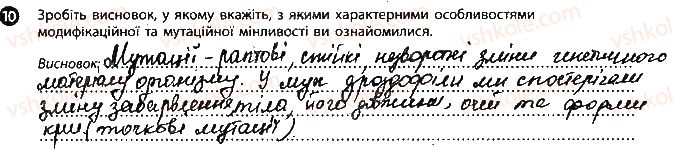 10 Зробіть висновок, у якому вкажіть, з якими характерними особливостями
модифікаційної та мутаційної мінливості ви ознайомилися.
Висновок Мутації - раптові, стійкі, незворотні зміни генетичного
матеріалу організму. У мух дрозофоли ми спостерігали
зміну забарвлення тіла, його довжини, очей та форми
крил (точкові мутації)